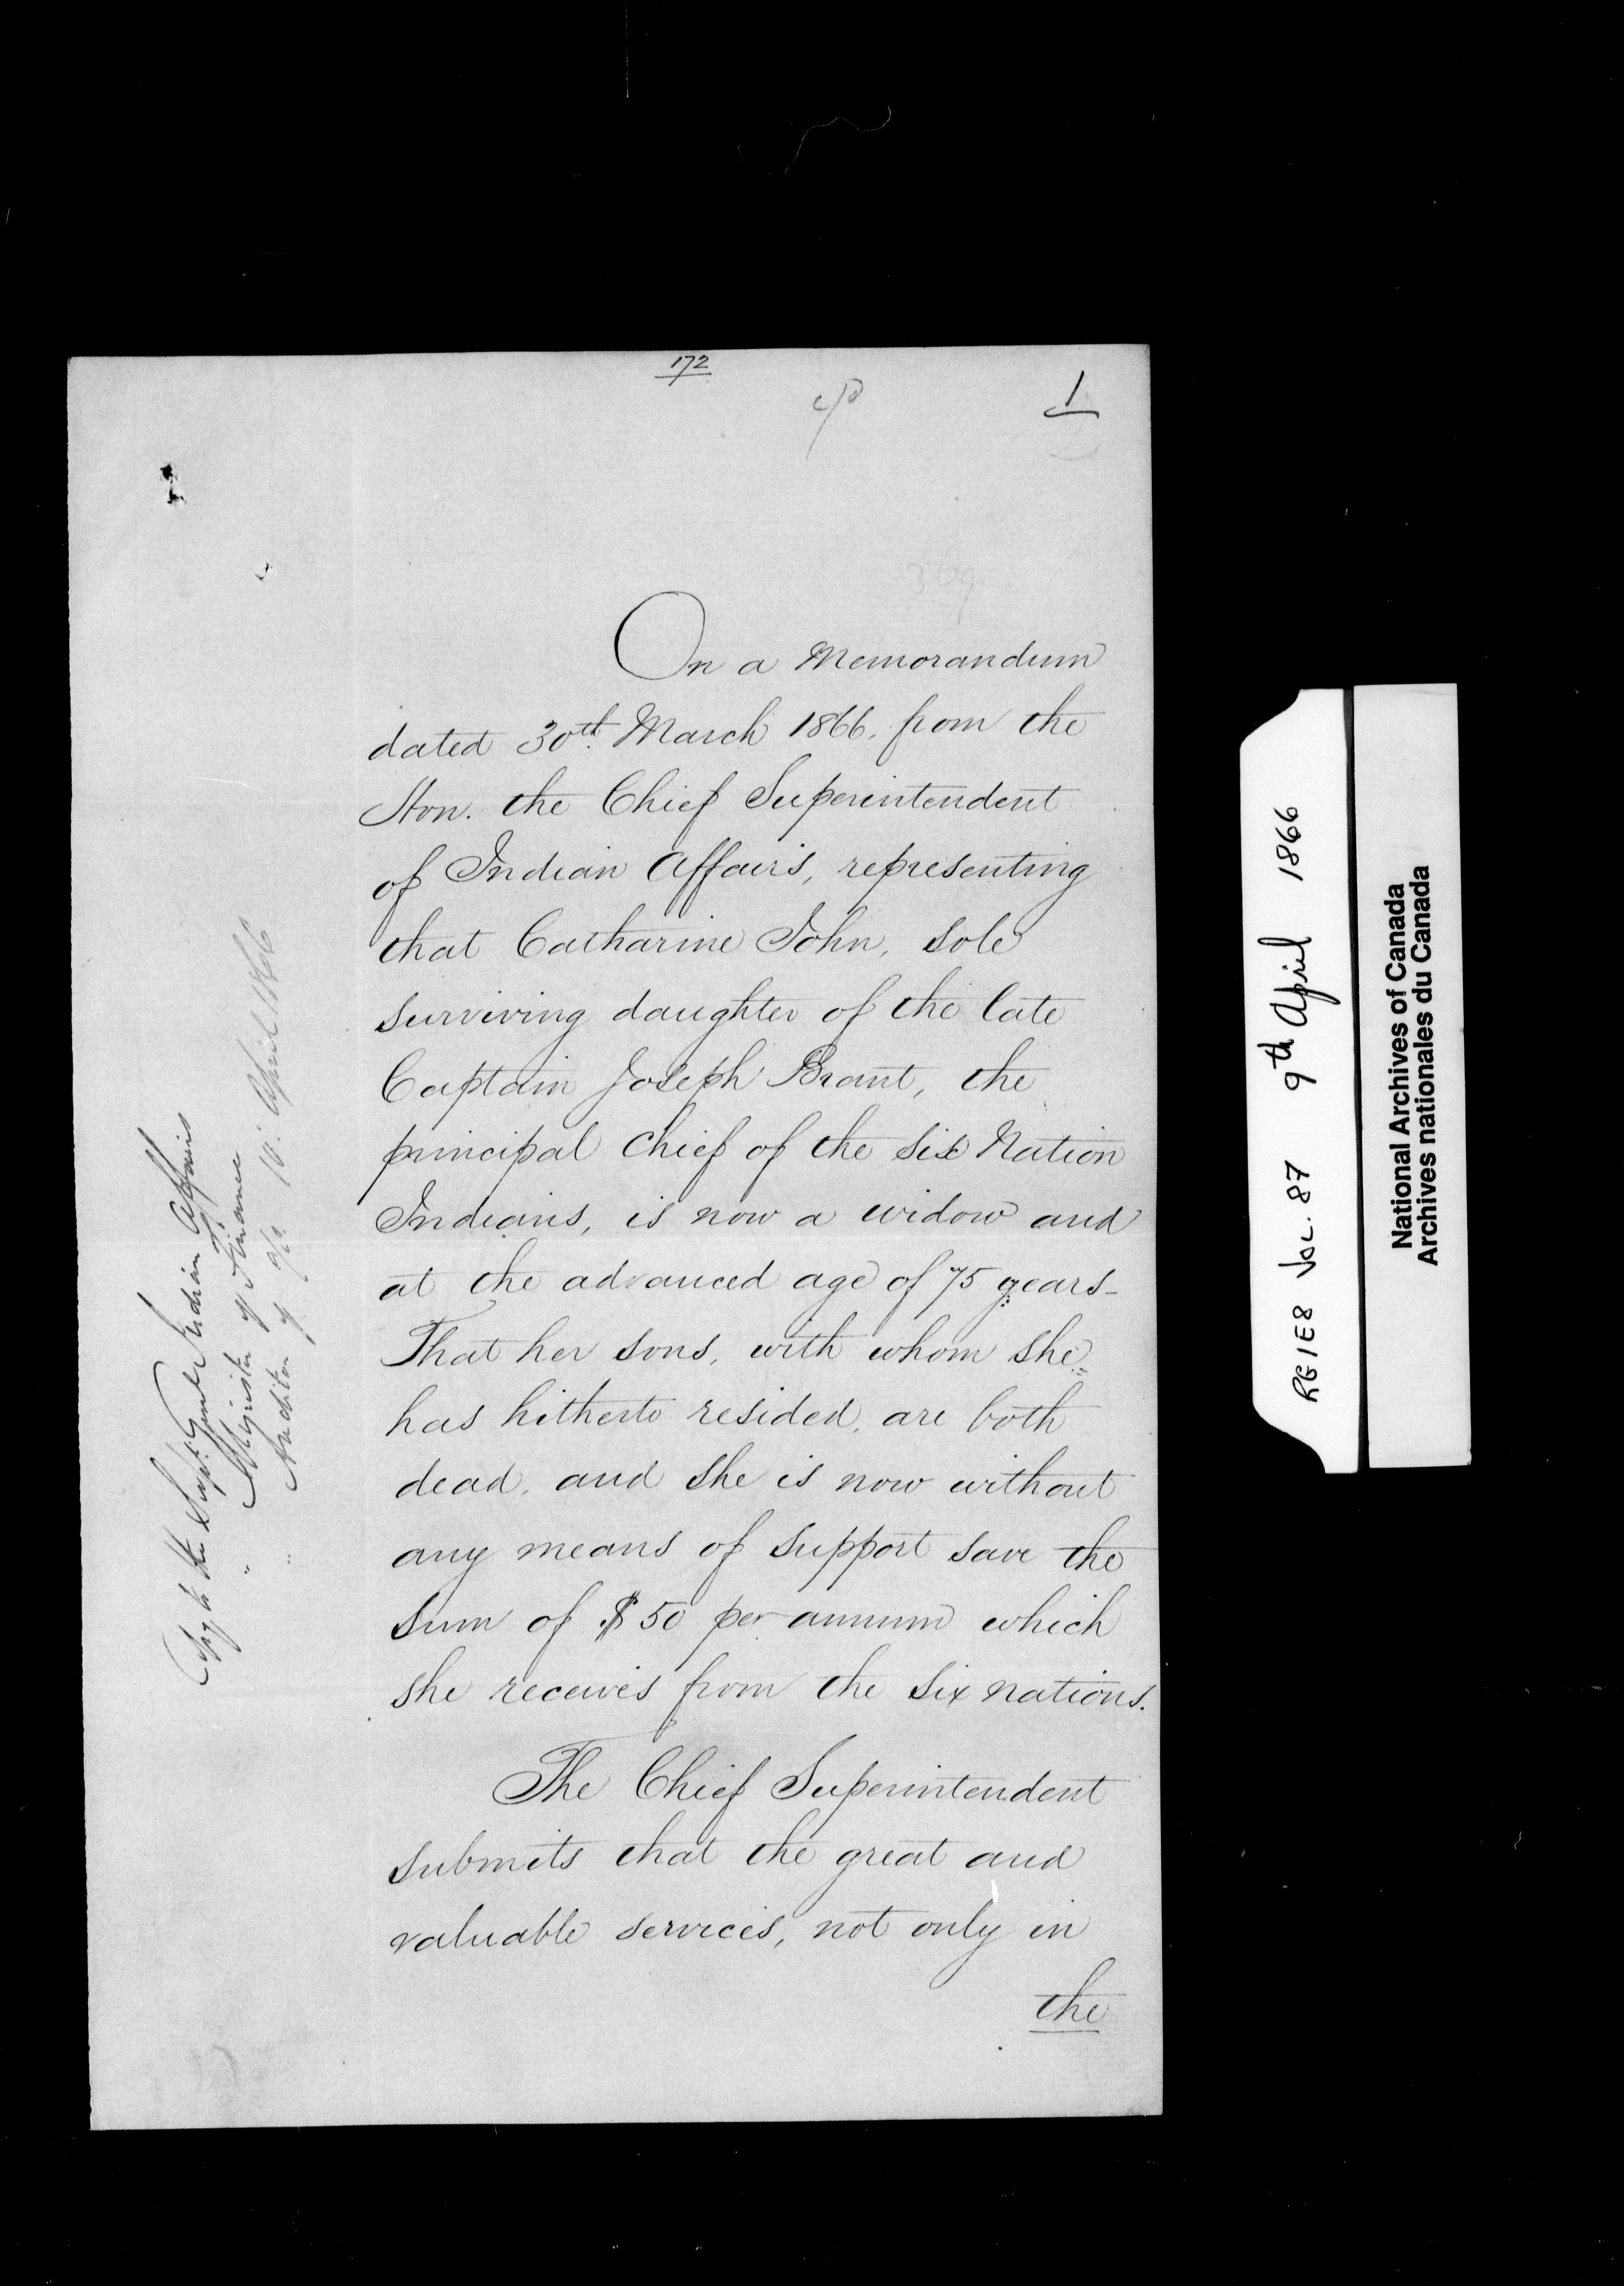 172
1
369
On a Memorandum
dated 30th. March 1866, from the
Hon. the Chief Superintendent
of Indian Affairs, representing
that Catharine John, sole
surviving daughter of the late
Captain Joseph Brant, the
principal Chief of the Six Nation
Indians, is now a widow and
at the advanced age of 75 years-
That her sons, with whom she
has hitherto resided, are both
dead, and she is now without
any means of support save the
sum of $50 per annum which
she receives from the Six nations.
The Chief Superintendent
submits that the great and
valuable services, not only in
the
Copy to the Supt. Genl. Indian Affairs
" Minister of Finance
" Auditor 10. April 1866
RG1E8 Vol. 87 9th April 1866
National Archives of Canada
Archives nationales du Canada